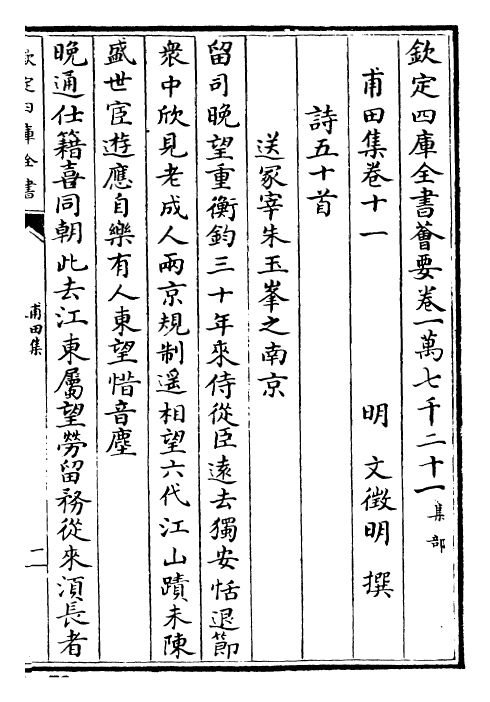 欽定四庫全書薈要卷一萬七千二十一集部
甫田集卷十一　明　文徵明　撰
詩五十首
送冢宰朱玉峯之南京
留司晚望重衡鈞三十年來侍從臣遠去獨安恬退節
衆中欣見老成人兩京規制遥相望六代江山蹟未陳
盛世宦遊應自樂有人東望惜音塵
晩通仕籍喜同朝此去江東屬望勞留務從來湏長者
欽定四庫全書
甫田集
二